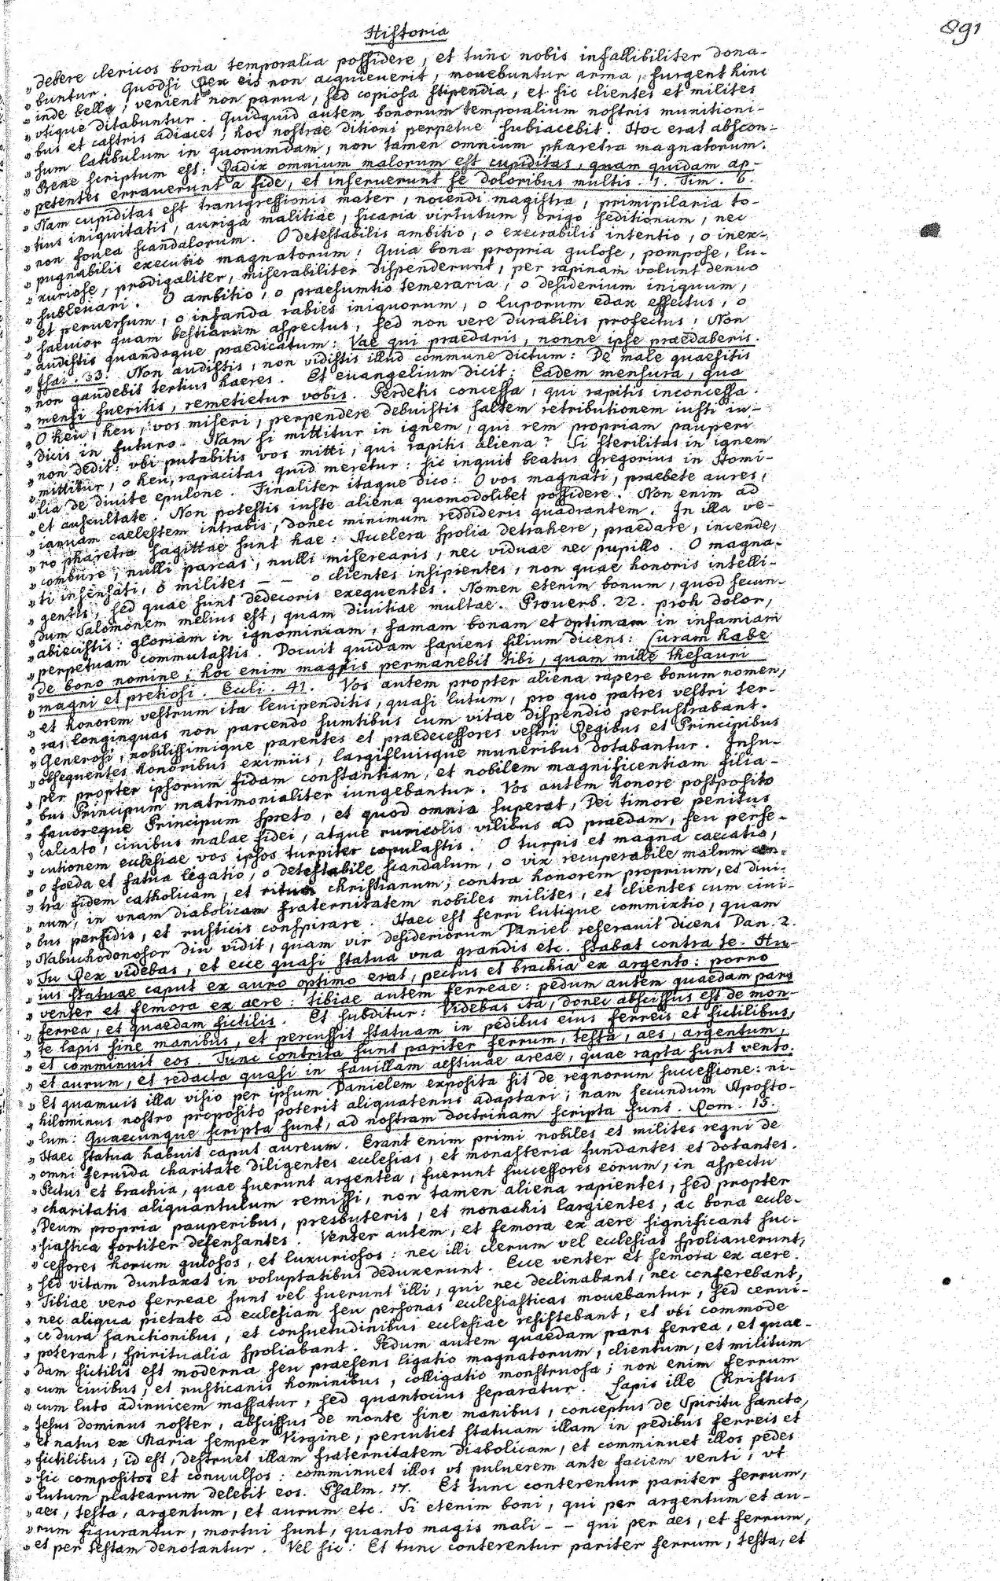 Historia
891
„debere clericos bona temporalia possidere, et tunc nobis infallibiliter dona-
„buntur. Quodsi Rex eis non acquieuerit, mouebuntur arma, surgent hinc
„inde bella, venient non parua, sed copiosa stipendia, et sic clientes et milites
„vtique ditabuntur. Quidquid autem bonorum temporalium nostris munitioni-
„bus et castris adiacet, hoc nostrae ditioni perpetue subiacebit. Hoc erat abscon-
„sum latibulum in quorumdam, non tamen omnium pharetra magnatorum.
„Bene scriptum est: Radix omnium malorum est cupiditas, quam quidam ap-
„petentes errauerunt a fide, et inseruerunt se doloribus multis. 1. Tim. 6.
„Nam cupiditas est transgressionis mater, nocendi magistra, primipilaria to-
„tius iniquitatis, auriga malitiae, sicaria virtutum, origo seditionum, nec
„non fouea scandalorum. O detestabilis ambitio, o execrabilis intentio, o inex-
„pugnabilis executio magnatorum! Quia bona propria gulose, pompose, lu-
„xuriose, prodigaliter, miserabiliter dispenderunt, per rapinam volunt denuo
„subleuari. O ambitio, o praesumtio temeraria, o desiderium iniquum,
„et peruersum, o infanda rabies iniquorum, o luporum edax effectus, o
„saeuior quam bestiarum aspectus, sed non vere durabilis profectus! Non
„audistis quandoque praedicatum: Vae qui praedaris, nonne ipse praedaberis.
„Isai. 33. Non audistis, non vidistis illud commune dictum: De male quaesitis
„non gaudebit tertius haeres. Et euangelium dicit: Eadem mensura, qua
„mensi fueritis, remetietur vobis. Perdetis concessa, qui rapitis inconcessa.
„O heu, heu, vos miseri, perpendere debuistis saltem retributionem iusti iu-
„dicis in futuro. Nam si mittitur in ignem, qui rem propriam pauperi
„non dedit: vbi putabitis vos mitti, qui rapitis aliena? Si sterilitas in ignem
„mittitur, o heu, rapacitas quid meretur: sic inquit beatus Gregorius in Homi-
„lia de diuite epulone. Finaliter itaque dico: O vos magnati, praebete aures,
„et auscultate. Non potestis iuste aliena quomodolibet possidere. Non enim ad
„ianuam caelestem intrabis, donec minimum reddideris quadrantem. In illa ve-
„ro pharetra sagittae sunt hae: Accelera spolia detrahere, praedare, incende,
„combure, nulli parcas, nulli miserearis, nec viduae nec pupillo. O magna-
„ti insensati, o milites - - o clientes insipientes, non quae honoris intelli-
„gentes, sed quae sunt dedecoris exequentes. Nomen etenim bonum, quod secun-
„dum Salomonem melius est, quam diuitiae multae. Prouerb. 22. proh dolor,
„abiecistis: gloriam in ignominiam, famam bonam et optimam in infamiam
„perpetuam commutastis. Docuit quidam sapiens filium dicens: Curam habe
„de bono nomine; hoc enim magis permanebit tibi, quam mille thesauri
„magni et pretiosi. Eccli. 41. Vos autem propter aliena rapere bonum nomen,
„et honorem vestrum ita leuipenditis, quasi lutum, pro quo patres vestri ter-
„ras longinquas non parcendo sumtibus cum vitae dispendio perlustrabant.
„Generosi, nobilissimique parentes et praedecessores vestri Regibus et Principibus
„obsequentes honoribus eximiis, largifluisque muneribus dotabantur. Insu-
„per propter ipsorum fidam constantiam, et nobilem magnificentiam filia-
„bus Principum matrimonialiter iungebantur. Vos autem honore postposito
„fauoreque Principum spreto, et quod omnia superat, Dei timore penitus
„calcato, ciuibus malae fidei, atque ruricolis vilibus ad praedam, seu perse-
„cutionem ecclesiae vos ipsos turpiter copulastis. O turpis et magna caecatio,
„o foeda et fatua legatio, o detestabile scandalum, o vix recuperabile malum con-
„tra fidem catholicam, et ritum christianum; contra honorem proprium, et diui-
„num, in vnam diabolicam fraternitatem nobiles milites, et clientes cum ciui-
„bus perfidis, et rusticis conspirare. Haec est ferri lutique commixtio, quam
„Nabuchodonosor diu vidit, quam vir desideriorum Daniel reserauit dicens Dan. 2.
„Tu Rex videbas, et ecce quasi statua vna grandis etc. stabat contra te. Hu-
„ius statuae caput ex auro optimo erat, pectus et brachia ex argento: porro
„venter et femora ex aere: tibiae autem ferreae: pedum autem quaedam pars
„ferrea, et quaedam fictilis. Et subditur: Videbas ita, donec abscissus est de mon-
„te lapis sine manibus, et percussit statuam in pedibus eius ferreis et fictilibus,
„et comminuit eos. Tunc contrita sunt pariter ferrum, testa, aes, argentum,
„et aurum, et redacta quasi in fauillam aestiuae areae, quae rapta sunt vento.
„Et quamuis illa visio per ipsum Danielem exposita sit de regnorum successione: ni-
„hilominus nostro proposito poterit aliquatenus adaptari; nam secundum Aposto-
„lum: Quaecunque scripta sunt, ad nostram doctrinam scripta sunt. Rom. 15.
„Haec statua habuit caput aureum. Erant enim primi nobiles et milites regni de
„omni feruida charitate diligentes ecclesias, et monasteria fundantes et dotantes.
„Pectus et brachia, quae fuerunt argentea, fuerunt successores eorum, in aspectu
„charitatis aliquantulum remissi, non tamen aliena rapientes, sed propter
„Deum propria pauperibus, presbyteris, et monachis largientes, ac bona eccle-
„siastica fortiter defensantes. Venter autem, et femora ex aere significant suc-
„cessores horum gulosos, et luxuriosos: nec illi clerum vel ecclesias spoliauerunt,
„sed vitam duntaxat in voluptatibus deduxerunt. Ecce venter et femora ex aere.
„Tibiae vero ferreae sunt vel fuerunt illi, qui nec declinabant, nec conferebant,
„nec aliqua pietate ad ecclesiam seu personas ecclesiasticas mouebantur, sed cerui-
„ce dura sanctionibus, et consuetudinibus ecclesiae resistebant, et vbi commode
„poterant, spiritualia spoliabant. Pedum autem quaedam pars ferrea, et quae-
„dam fictilis est moderna seu praesens ligatio magnatorum, clientum, et militum
„cum ciuibus, et rusticanis hominibus, colligatio monstruosa; non enim ferrum
„cum luto adinuicem massatur, sed quantocius separatur. Lapis ille Christus
„Jesus dominus noster, abscissus de monte sine manibus, conceptus de Spiritu sancto,
„et natus ex Maria semper Virgine, percutiet statuam illam in pedibus ferreis et
„fictilibus, id est, destruet illam fraternitatem diabolicam, et comminuet illos pedes
„sic compositos et conuulsos: comminuet illos vt puluerem ante faciem venti, vt
„lutum platearum delebit eos. Psalm. 17. Et tunc conterentur pariter ferrum,
„aes, testa, argentum, et aurum etc. Si etenim boni, qui per argentum et au-
„rum figurantur, mortui sunt, quanto magis mali - - qui per aes, et ferrum,
„et per testam denotantur. Vel sic: Et tunc conterentur pariter ferrum, testa, et